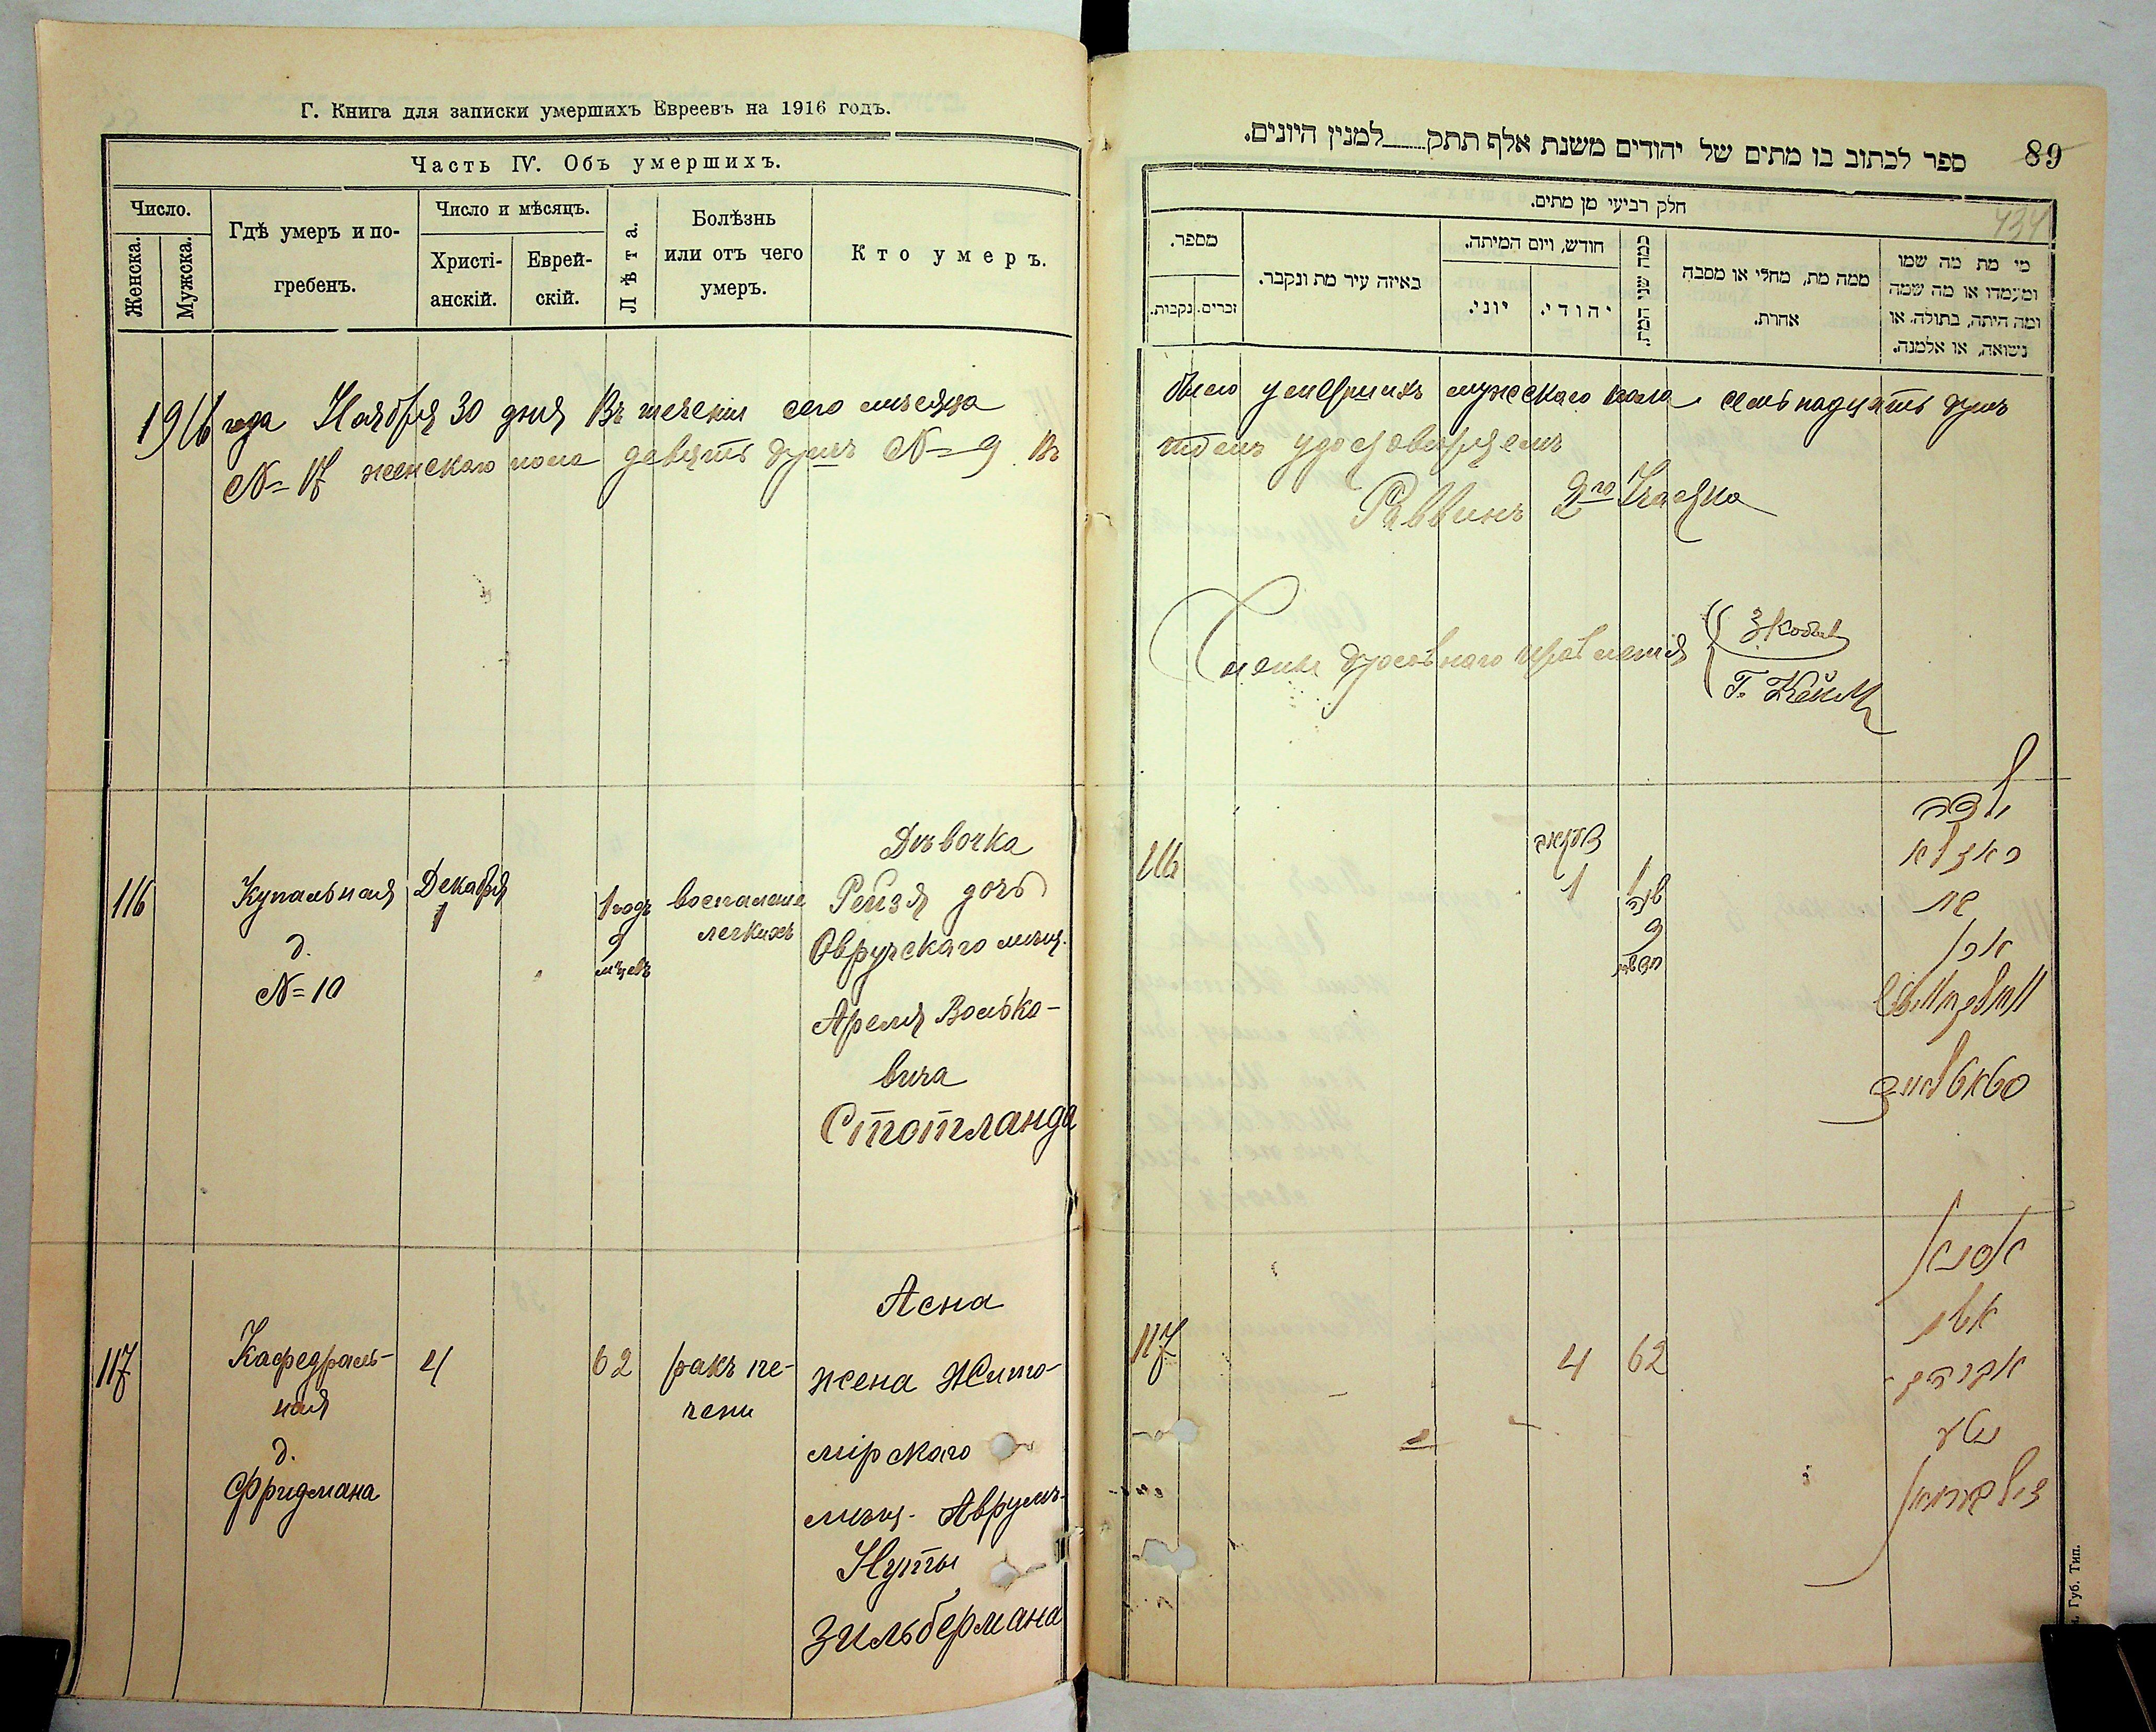 Г. Книга для записки умершихъ Евреевъ на 1916 годъ.
Часть IV. Объ умершихъ.
Число.
Женска.
Мужска.
Гдѣ умеръ и по-
гребенъ.
Число и мѣсяцъ.
Христі-
анскій.
Еврей-
скій.
Лѣта.
Болѣзнь
или отъ чего
умеръ.
Кто умеръ.
1916 года Ноября 30 дня Въ теченіи сего мѣсяца
№ 17 женскаго пола девять душъ № 9. Въ
116
Купальная
д.
№ 10
Декабря
1
1 годъ
9
мѣцевъ
воспаленіе
легкихъ
Дѣвочка
Рейзя дочь
Овручскаго мѣщ.
Арелія Волько-
вича
Стотланда
117
Кафедраль-
ная
д.
Фридмана
4
62
ракъ пе-
чени
Асна
жена Жито-
мірскаго
мѣщ. Аврумъ-
Нуты
Зильбермана
89
434
ספר לכתוב בו מתים של יהודים משנת אלף תתק למנין היונים.
חלק רביעי מן מתים.
מספר.
זכרים.
נקבות.
באיזה עיר מת ונקבר.
חודש, ויום המיתה.
יוני.
יהודי.
כמה שני המת.
ממה מת, מחלי או מסבה
אחרת.
מי מת מה שמו
ומעמדו או מה שמה
ומה היתה, בתולה. או
נשואה, או אלמנה.
было умершихъ мужскаго пола семьнадцать душъ
томъ удостовѣряемъ
Раввинъ 2го Участка
Члены духовнаго правленія
116
דעקאבר
1
1
שנה
9
חדשים
ילדה
רייזא
בת
117
4
62
זילבערמאן
Губ. Тип.